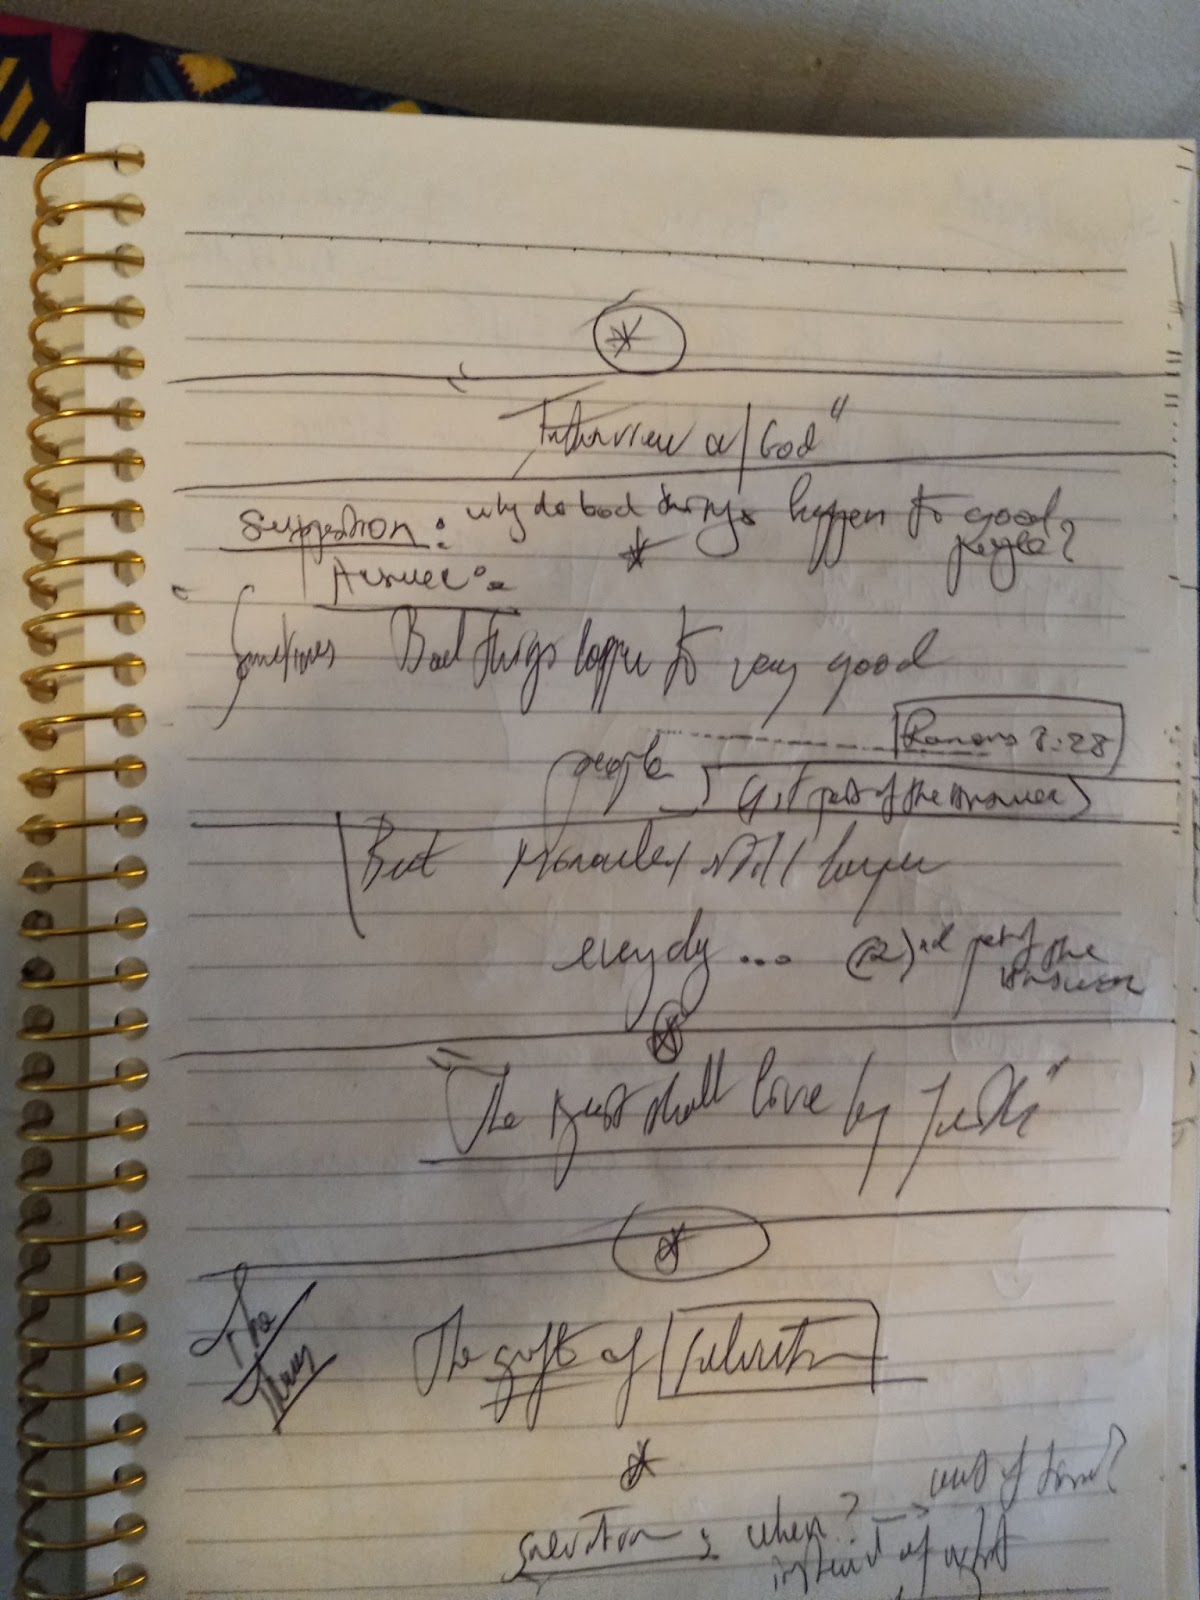 "Interview w/ God"
Suggestion: why do bad things happen to good
people?
Answer:
Sometimes Bad things happen to very good
people
Romans 8:28
(1st part of the answer)
But Miracles still happen
everyday ... (2)nd part of the
answer
"The Just shall live by faith"
The
The gift of Salvation
out of time?
question: when?
instead of what